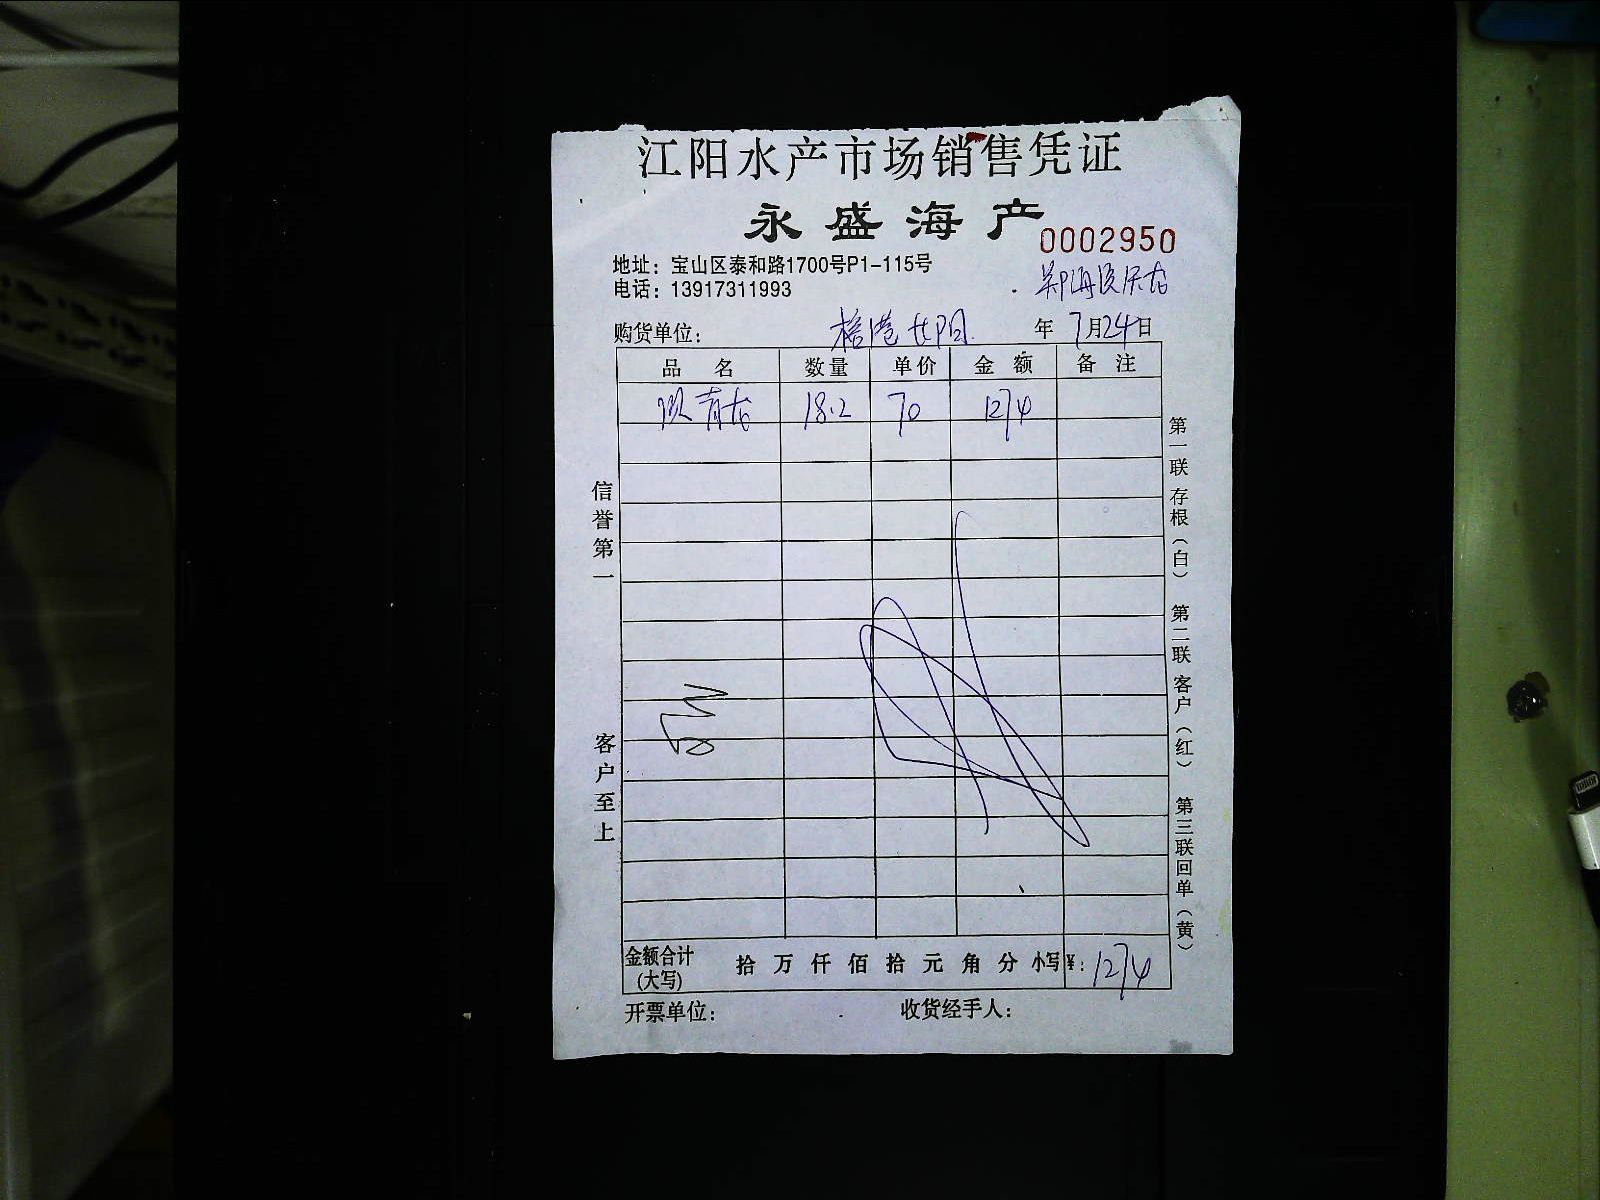 江阳水产市场销售凭证
永盛海产
0002950
地址：宝山区泰和路1700号P1-115号
电话：13917311993
购货单位： 年 7月24日
品名 数量 单价 金额 备注
18.2 70 1274
信誉第一
客户至上
第一联 存根（白） 第二联 客户（红） 第三联 回单（黄）
金额合计 拾 万 仟 佰 拾 元 角 分 小写¥：1274
(大写)
开票单位： 收货经手人：